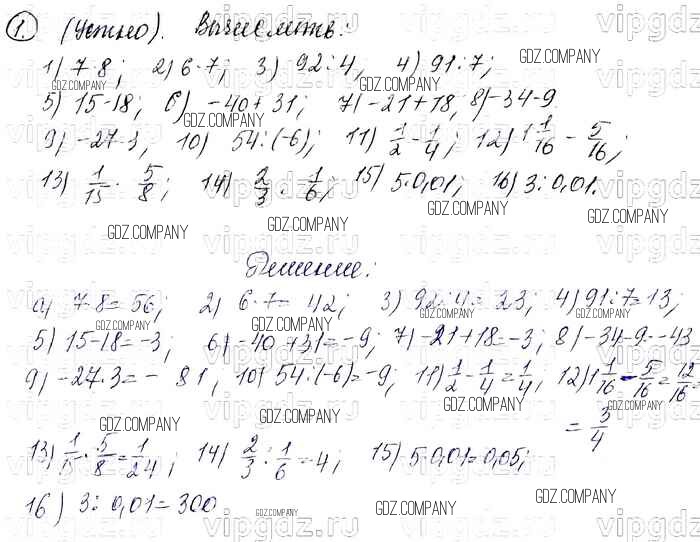 1. (Устно). Вычислить:
1) 7·8; 2) 6·7; 3) 92:4, 4) 91:7;
5) 15-18; 6) -40+31; 7) -21+18, 8) -34-9
9) -27·3; 10) 54:(-6); 11) 1/2 - 1/4; 12) 1 1/16 - 5/16;
13) 1/15 · 5/8; 14) 2/3 : 1/6; 15) 5·0,01; 16) 3:0,01.
Решение:
1) 7·8=56; 2) 6·7=42; 3) 92:4=23; 4) 91:7=13;
5) 15-18=-3; 6) -40+31=-9; 7) -21+18=-3; 8) -34-9=-43
9) -27·3=-81, 10) 54:(-6)=-9; 11) 1/2 - 1/4 = 1/4; 12) 1 1/16 - 5/16 = 12/16 =
= 3/4
13) 1/15 · 5/8 = 1/24; 14) 2/3 : 1/6 = 4; 15) 5·0,01=0,05;
16) 3:0,01=300
GDZ.COMPANY
vipgdz.ru